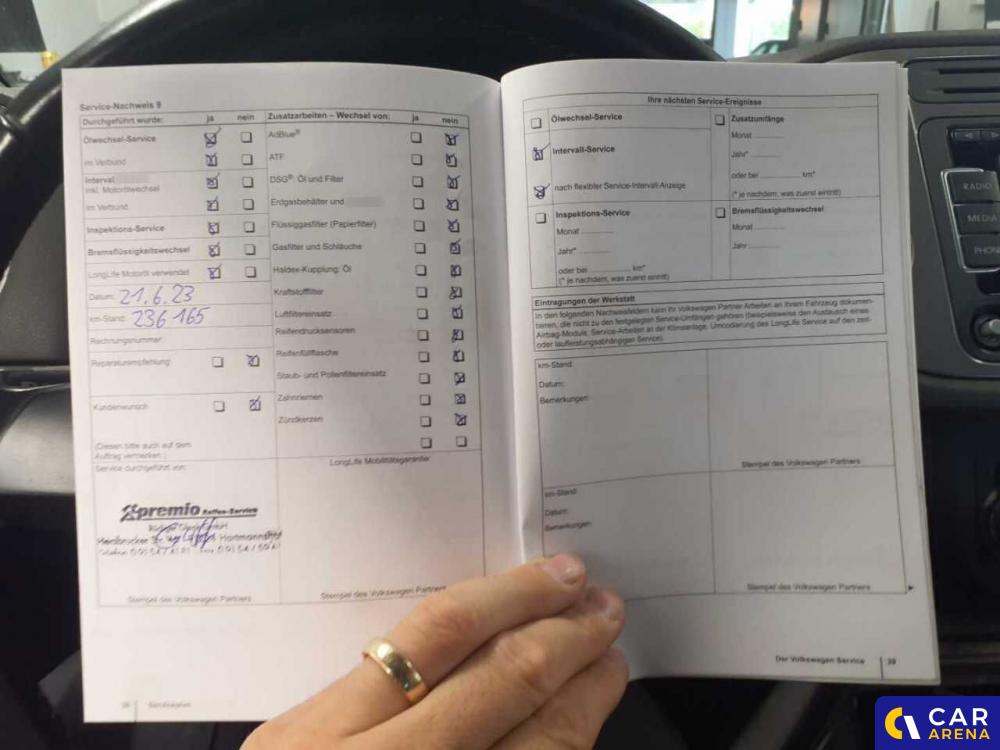 Service-Nachweis 9
Durchgeführt wurde: ja nein
Ölwechsel-Service
im Verbund
Interval
inkl. Motorölwechsel
im Verbund
Inspektions-Service
Bremsflüssigkeitswechsel
LongLife Motoröl verwendet
Datum: 21.6.23
km-Stand: 236 165
Rechnungsnummer:
Reparaturempfehlung
Kundenwunsch
(Diesen bitte auch auf dem
Auftrag vermerken.)
Service durchgeführt von:
premio Reifen-Service
Hersbrucker Hartmannshof
Stempel des Volkswagen Partners
Zusatzarbeiten – Wechsel von: ja nein
AdBlue®
ATF
DSG®: Öl und Filter
Erdgasbehälter und
Flüssiggasfilter (Papierfilter)
Gasfilter und Schläuche
Haldex-Kupplung: Öl
Kraftstofffilter
Luftfiltereinsatz
Reifendrucksensoren
Reifenfüllflasche
Staub- und Pollenfiltereinsatz
Zahnriemen
Zündkerzen
LongLife Mobilitätsgarantie:
Stempel des Volkswagen Partners
Serviceplan
Ihre nächsten Service-Ereignisse
Ölwechsel-Service
Intervall-Service
nach flexibler Service-Intervall-Anzeige
Inspektions-Service
Monat
Jahr*
oder bei km*
(* je nachdem, was zuerst eintritt)
Zusatzumfänge
Monat
Jahr*
oder bei km*
(* je nachdem, was zuerst eintritt)
Bremsflüssigkeitswechsel
Monat
Jahr
Eintragungen der Werkstatt
In den folgenden Nachweisfeldern kann Ihr Volkswagen Partner Arbeiten an Ihrem Fahrzeug dokumen-
tieren, die nicht zu den festgelegten Service-Umfängen gehören (beispielsweise den Austausch eines
Airbag-Moduls, Service-Arbeiten an der Klimaanlage, Umcodierung des LongLife Service auf den zeit-
oder laufleistungsabhängigen Service).
km-Stand:
Datum:
Bemerkungen:
Stempel des Volkswagen Partners
km-Stand:
Datum:
Bemerkungen:
Stempel des Volkswagen Partners
Der Volkswagen Service 39
RADIO
MEDIA
PHONE
CAR
ARENA